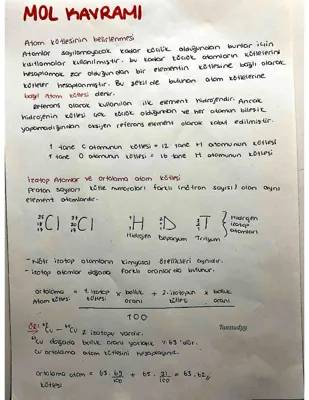 MOL KAVRAMI
Atom kütlesinin belirlenmesi
Atomlar sayılamayacak kadar küçük olduğundan bunlar için
kısıtlamalar kullanılmıştır. Bu kadar küçük atomların kütlelerini
hesaplamak zor olduğundan bir elementin kütlesine bağlı olarak
kütleler hesaplanmıştır. Bu şekilde bulunan atom kütlelerine
bağıl atom kütlesi denir.
Referans olarak kullanılan ilk element hidrojendir. Ancak
hidrojenin kütlesi çok küçük olduğundan ve her atomun bileşik
yapamadığından oksijen referans element olarak kabul edilmiştir.
1 tane C atomunun kütlesi = 12 tane H atomunun kütlesi
1 tane O atomunun kütlesi = 16 tane H atomunun kütlesi
İzotop Atomlar ve ortalama atom kütlesi
Proton sayıları kütle numaraları farklı (nötron sayısı) olan aynı
element atomlarıdır.
Cl Cl H D T Hidrojen izotop atomları
Hidrojen Döteryum Trityum
- Nötr izotop atomların kimyasal özellikleri aynıdır.
- İzotop atomlar doğada farklı oranlarda bulunur.
ortalama atom kütlesi = 1. izotop kütlesi x bolluk oranı + 2. izotopun kütlesi x bolluk oranı
100
ÖR: Cu - Cu 2 izotopu vardır.
Cu doğada bolluk oranı yaklaşık % 69'dur.
Cu ortalama atom kütlesini hesaplayınız.
ortalama atom kütlesi = 63. 69/100 + 65. 31/100 = 63.62